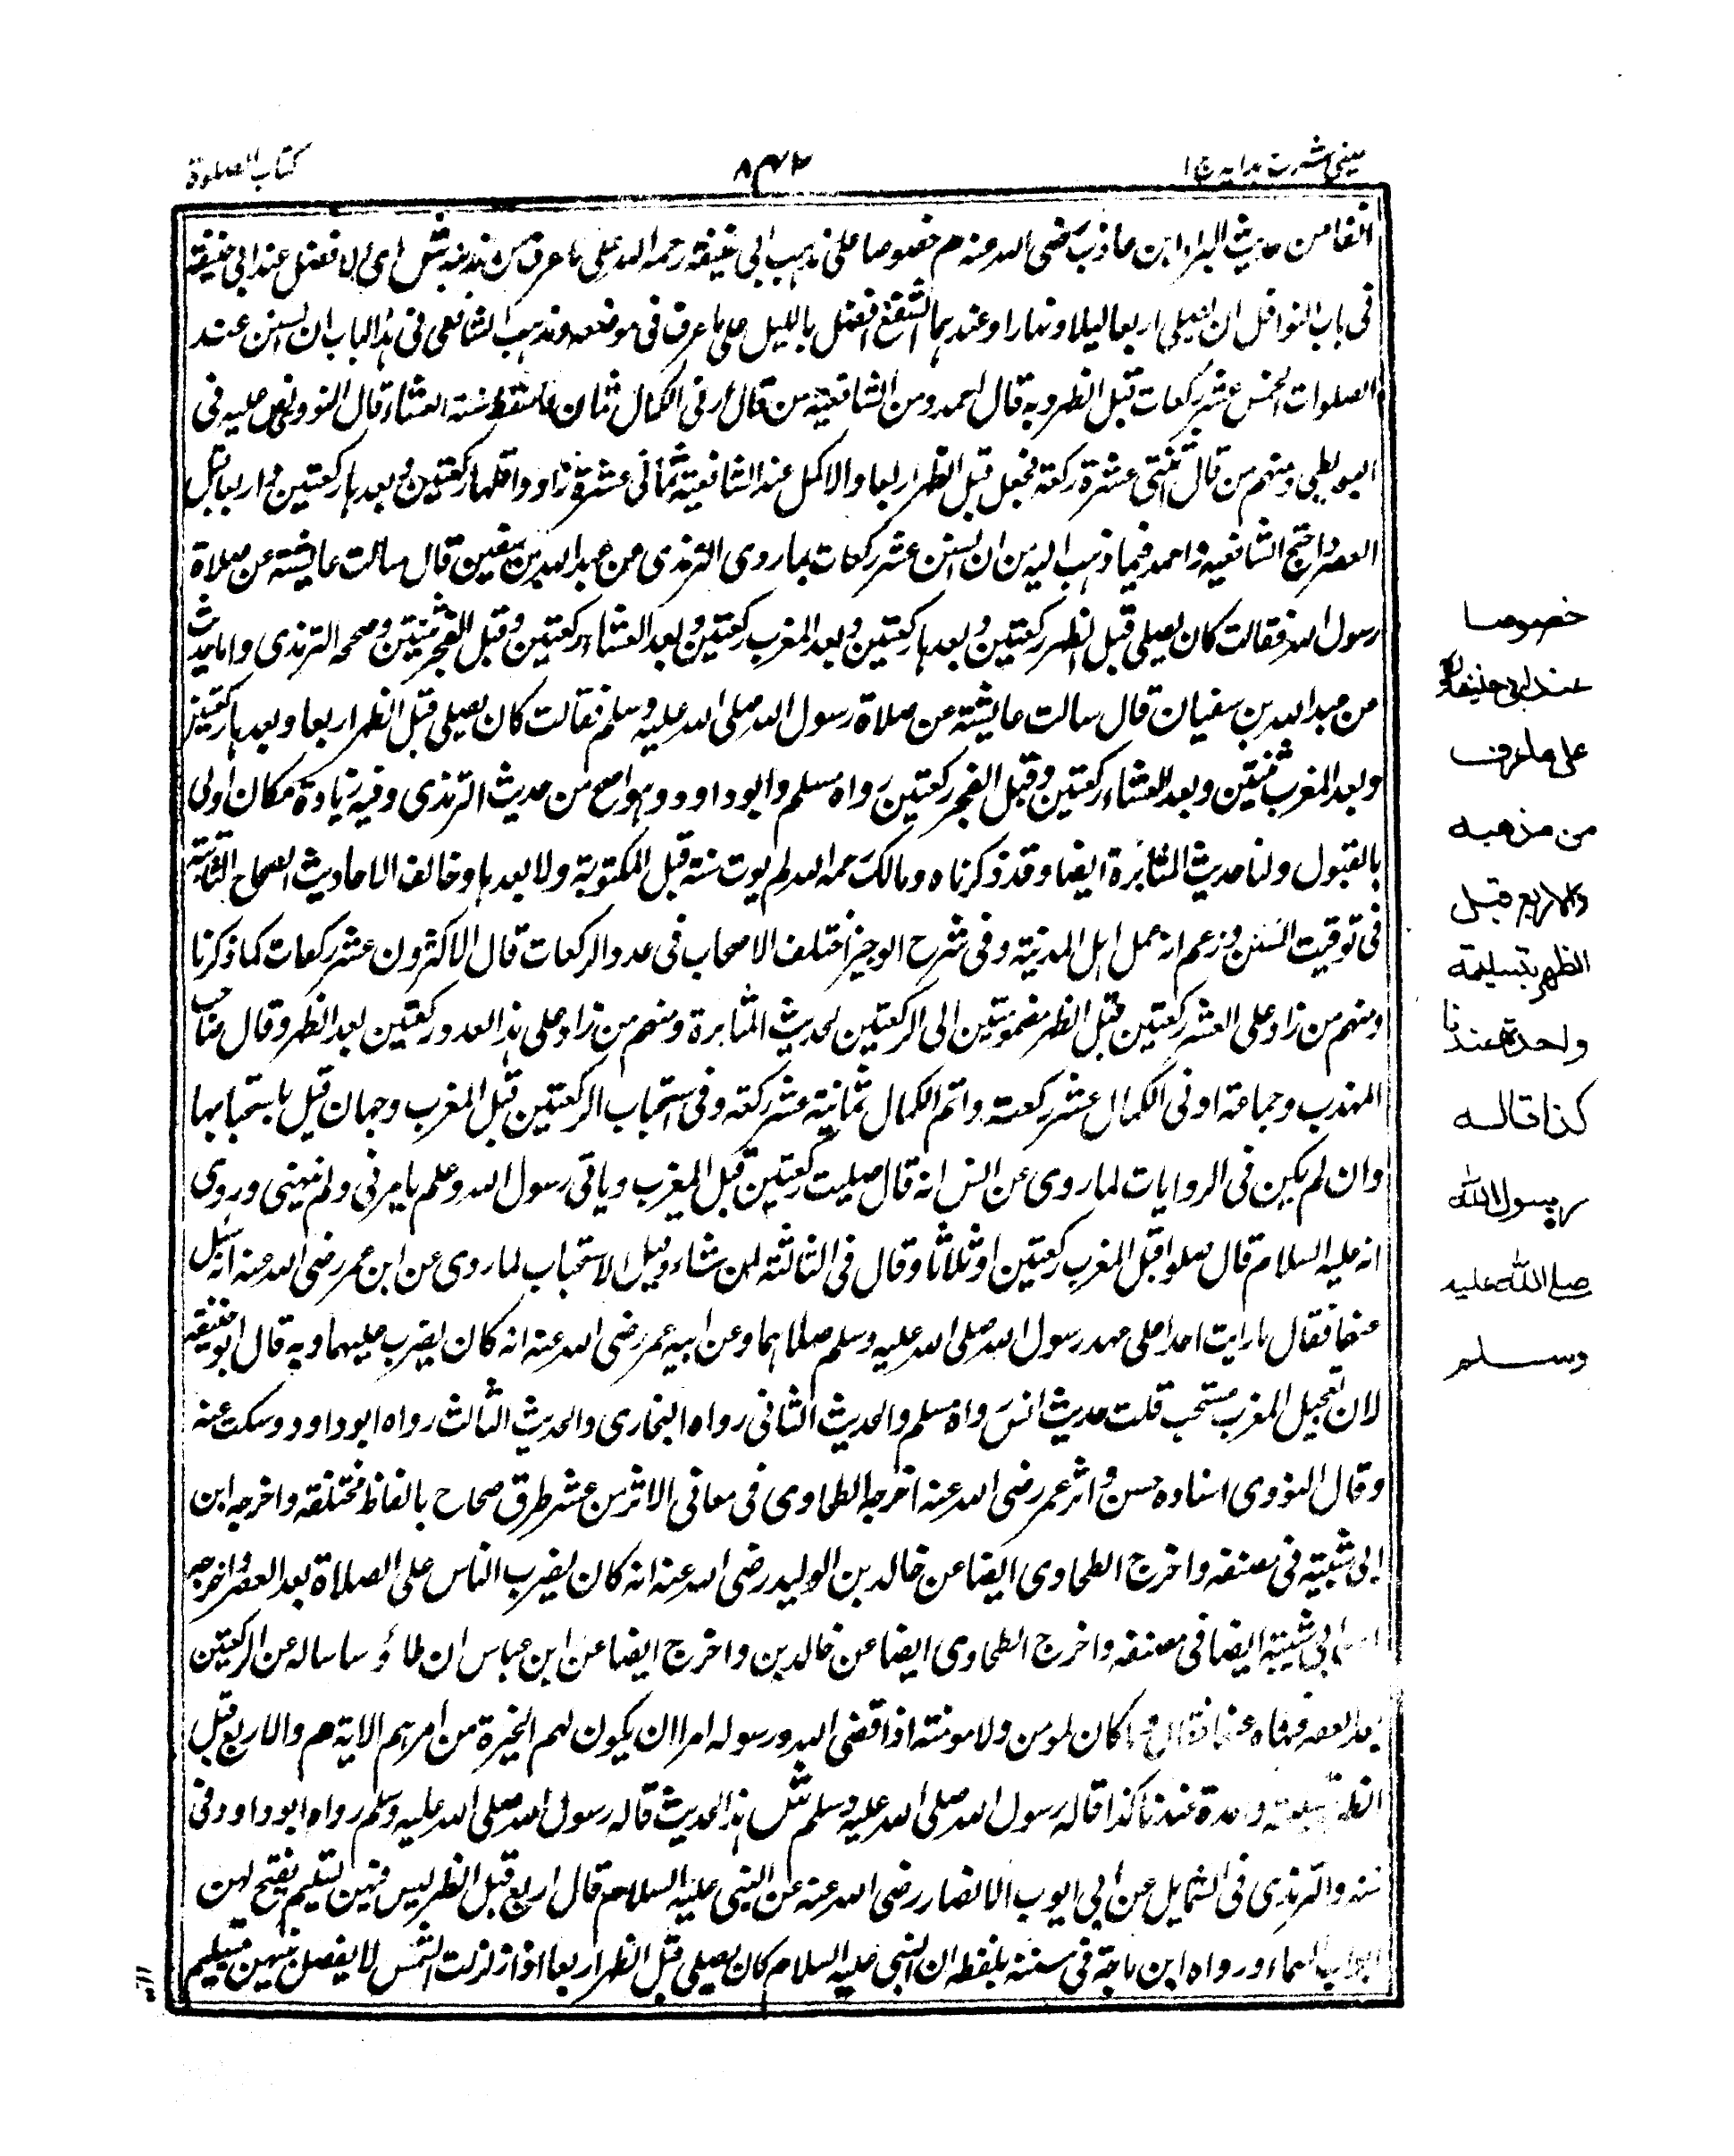 عینی شرح هدایه ج ۱
۸۴۲
کتاب الصلوة
آنفا من حدیث البراء ابن عاذب رضی الله عنه م خصوصا علی مذهب ابی حنیفة رحمه الله علی ما عرف من مذهبه ش ای الافضل عند ابی حنیفة
فی باب النوافل ان یصلی اربعا لیلا ونهارا وعندهما الشفع افضل باللیل علی ما عرف فی موضعه ومذهب الشافعی فی هذا الباب ان السنن عند
الصلوات الخمس عشر رکعات قبل الظهر وبه قال احمد ومن الشافعیة من قال ادنی الکمال ثمان فاسقط سنة العشاء قال النووی نص علیه فی
البویطی ومنهم من قال اثنتی عشرة رکعة فجعل قبل الظهر اربعا والاکمل عند الشافعیة ثمانی عشرة زادوا قبلها رکعتین وبعدها رکعتین واربعا قبل
العصر واحتج الشافعیه واحمد فیما ذهب الیه من ان السنن عشر رکعات بما روی الترمذی من عبد الله بن سفین قال سالت عایشة عن صلاة
رسول الله فقالت کان یصلی قبل الظهر رکعتین وبعدها رکعتین وبعد المغرب رکعتین وبعد العشاء رکعتین وقبل الفجر ثنتین وصححه الترمذی واما حدیث
من عبد الله بن سفیان قال سالت عایشة عن صلاة رسول الله صلی الله علیه وسلم فقالت کان یصلی قبل الظهر اربعا وبعدها رکعتین
وبعد المغرب ثنتین وبعد العشاء رکعتین وقبل الفجر رکعتین رواه مسلم وابو داود وهو اصح من حدیث الترمذی وفیه زیادة فکان اولی
بالقبول ولنا حدیث المثابرة ایضا وقد ذکرناه ومالک رحمه الله لم یوت سنة قبل المکتوبة ولا بعدها وخالف الاحادیث الصحاح الثابتة
فی توقیت السنن وزعم انه عمل اهل المدینة وفی شرح الوجیز اختلف الاصحاب فی عدد الرکعات قال الاکثرون عشر رکعات کما ذکرنا
ومنهم من زاد علی العشر رکعتین قبل الظهر مضمومتین الی الرکعتین لحدیث المثابرة ومنهم من زاد علی هذا العدد رکعتین بعد الظهر وقال صاحب
المهذب وجماعة ادنی الکمال عشر رکعة واتم الکمال ثمانیة عشر رکعة وفی استحباب الرکعتین قبل المغرب وجهان قیل باستحبابها
وان لم یکن فی الروایات لما روی عن انس انه قال صلیت رکعتین قبل المغرب ویاتی رسول الله وعلم یامرنی ولم ینهنی وروی
انه علیه السلام قال صلوا قبل المغرب رکعتین اوثلاثا وقال فی الثالثة لمن شاء وقیل الاستحباب لما روی عن ابن عمر رضی الله عنه انه سئل
عنها فقال ما رایت احدا علی عهد رسول الله صلی الله علیه وسلم صلاهما وعن ابیه عمر رضی الله عنه انه کان یضرب علیهما وبه قال ابو حنیفة
لان تعجیل المغرب مستحب قلت حدیث انس رواه مسلم والحدیث الثانی رواه البخاری والحدیث الثالث رواه ابو داود وسکت عنه
وقال النووی اسناده حسن واثر عمر رضی الله عنه اخرجه الطحاوی فی معانی الاثر من عشر طرق صحاح بالفاظ مختلفة واخرجه ابن
ابی شیبة فی مصنفه واخرج الطحاوی ایضا عن خالد بن الولید رضی الله عنه انه کان یضرب الناس علی الصلاة بعد العصر واخرجه
ابی شیبة ایضا فی مصنفه واخرج الطحاوی ایضا عن خالد بن واخرج ایضا عن ابن عباس ان طاؤسا ساله عن الرکعتین
بعد العصر فنهاه عنها فقال وما کان لمومن ولا مومنة اذا قضی الله ورسوله امرا ان یکون لهم الخیرة من امرهم الایة م والاربع قبل
الظهر بتسلیمة واحدة عندنا کذا قاله رسول الله صلی الله علیه وسلم ش هذا الحدیث قاله رسول الله صلی الله علیه وسلم رواه ابو داود فی
سننه والترمذی فی الشمایل عن ابی ایوب الانصار رضی الله عنه عن النبی علیه السلام قال اربع قبل الظهر لیس فیهن تسلیم یفتح لهن
ابواب السماء ورواه ابن ماجة فی سننه بلفظه ان النبی علیه السلام کان یصلی قبل الظهر اربعا اذا زالت الشمس لا یفصل بینهن بتسلیم
خصوصا
عند ابی حنیفة
علی ما عرف
من مذهبه
والاربع قبل
الظهر بتسلیمة
واحدة عندنا
کذا قاله
رسول الله
صلی الله علیه
وسلم